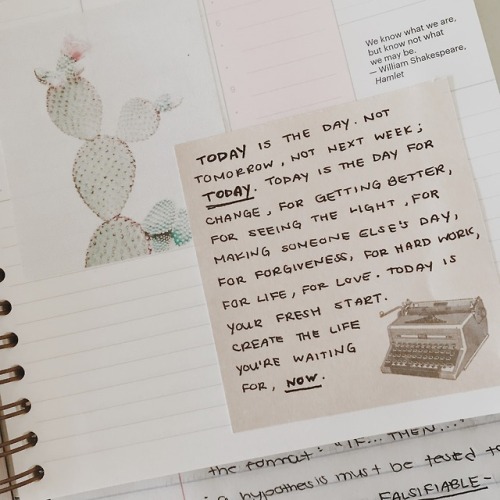 We know what we are,
but know not what
we may be.
— William Shakespeare,
Hamlet
TODAY IS THE DAY. NOT
TOMORROW, NOT NEXT WEEK;
TODAY. TODAY IS THE DAY FOR
CHANGE, FOR GETTING BETTER,
FOR SEEING THE LIGHT, FOR
MAKING SOMEONE ELSE'S DAY,
FOR FORGIVENESS, FOR HARD WORK,
FOR LIFE, FOR LOVE. TODAY IS
YOUR FRESH START.
CREATE THE LIFE
YOU'RE WAITING
FOR, NOW.
the format: "IF... THEN..."
a hypothesis must be tested to
FALSIFIABLE-